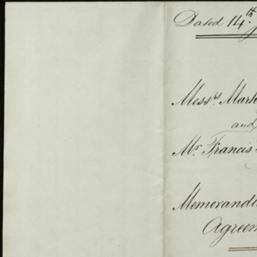 Dated 14th
Messrs Mark
and
Mr Francis
Memorand
Agreem